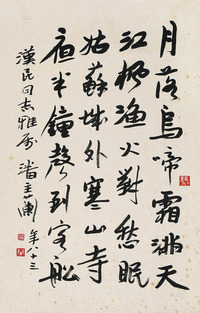 月落烏啼霜滿天
江楓漁火對愁眠
姑蘇城外寒山寺
夜半鐘聲到客船
漢民同志雅屬 潘主蘭
年八十三